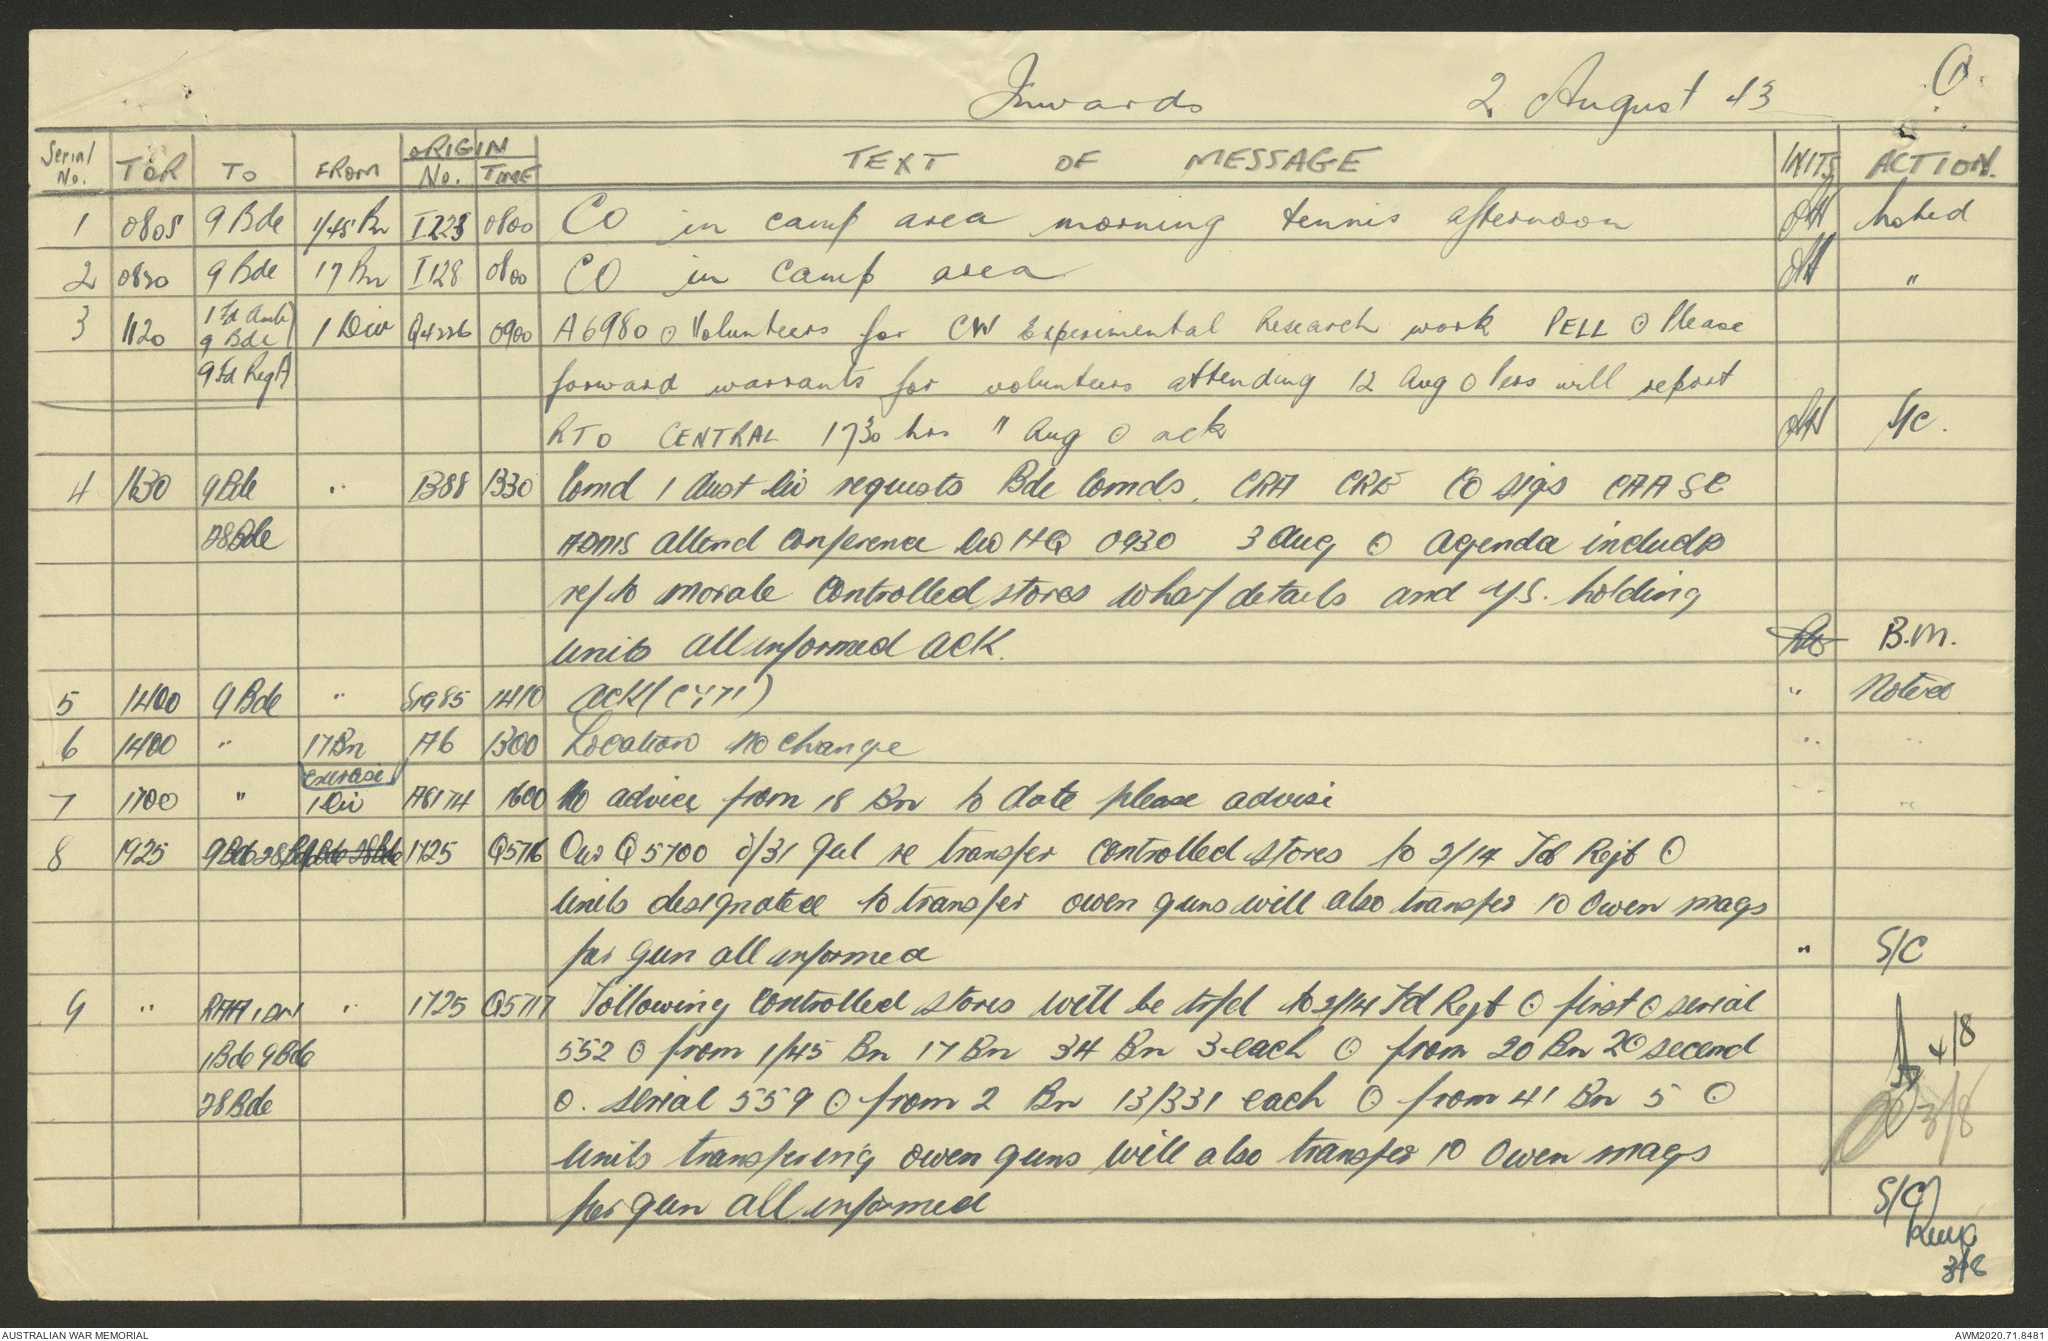 Inwards 2 August 43
Serial No. TOR TO FROM ORIGIN No. TIME TEXT OF MESSAGE INITS ACTION.
1 0805 9 Bde 1/45 Bn I223 0800 CO in camp area morning tennis afternoon noted
2 0820 9 Bde 17 Bn I128 0800 CO in camp area "
3 1120 1 Fd Amb 9 Bde 1 Div Q4226 0900 A6980 ⊙ Volunteers for CW Experimental Research work PELL ⊙ Please
9 Fd Regt forward warrants for volunteers attending 12 Aug ⊙ Pers will report
RTO CENTRAL 1730 hrs 11 Aug ⊙ ack S/C.
4 1630 9 Bde " B88 1330 Comd 1 Aust Div requests Bde Comds. CRA CRE CO Sigs CAASC
28 Bde ADMS attend conference Div HQ 0930 3 Aug ⊙ agenda includes
ref to morale controlled stores wharf details and Y.S. holding
units all informed ack. B.M.
5 1400 9 Bde " Sig85 1410 ack ( " Noted
6 1400 " 17 Bn A6 1300 Location no change " "
exercise
7 1700 " 1 Div A8174 1600 No advice from 18 Bn to date please advise " "
8 1925 9 Bde 28 Bde 1725 Q5716 Our Q5700 d/31 Jul re transfer controlled stores to 2/14 Fd Regt ⊙
units designated to transfer owen guns will also transfer 10 Owen mags
per gun all informed " S/C
9 " RAA 1 Div " 1725 Q5717 Following controlled stores will be trfd to 2/14 Fd Regt ⊙ first ⊙ serial
1 Bde 9 Bde 552 ⊙ from 1/45 Bn 17 Bn 34 Bn 3 each ⊙ from 20 Bn 2 ⊙ second 4/8
28 Bde ⊙. serial 559 ⊙ from 2 Bn 13/33 1 each ⊙ from 41 Bn 5 ⊙ 3/8
units transfering owen guns will also transfer 10 Owen mags
per gun all informed S/C
3/8
AUSTRALIAN WAR MEMORIAL AWM2020.71.8481